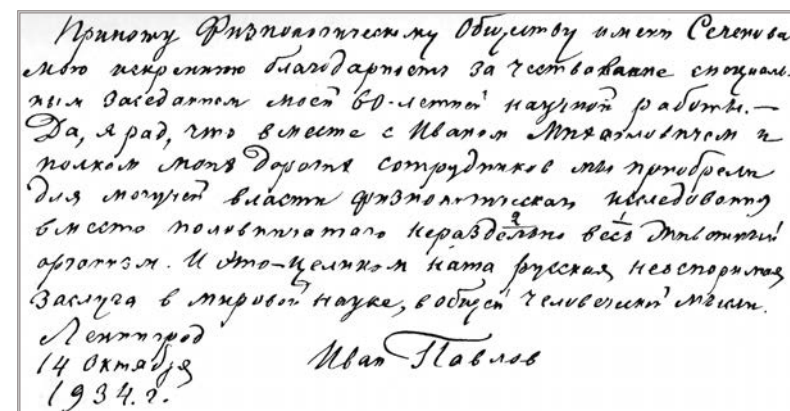 Приношу Физиологическому Обществу имени Сеченова
мою искреннюю благодарность за чествование специаль-
ным заседанием моей 60-летней научной работы. —
Да, я рад, что вместе с Иваном Михайловичем и
полком моих дорогих сотрудников мы приобрели
для могучей власти физиологического исследования
вместо половинчатого нераздельно весь животный
организм. И это — целиком наша русская неоспоримая
заслуга в мировой науке, в общей человеческой мысли.
Ленинград
14 Октября
1934. г.
Иван Павлов